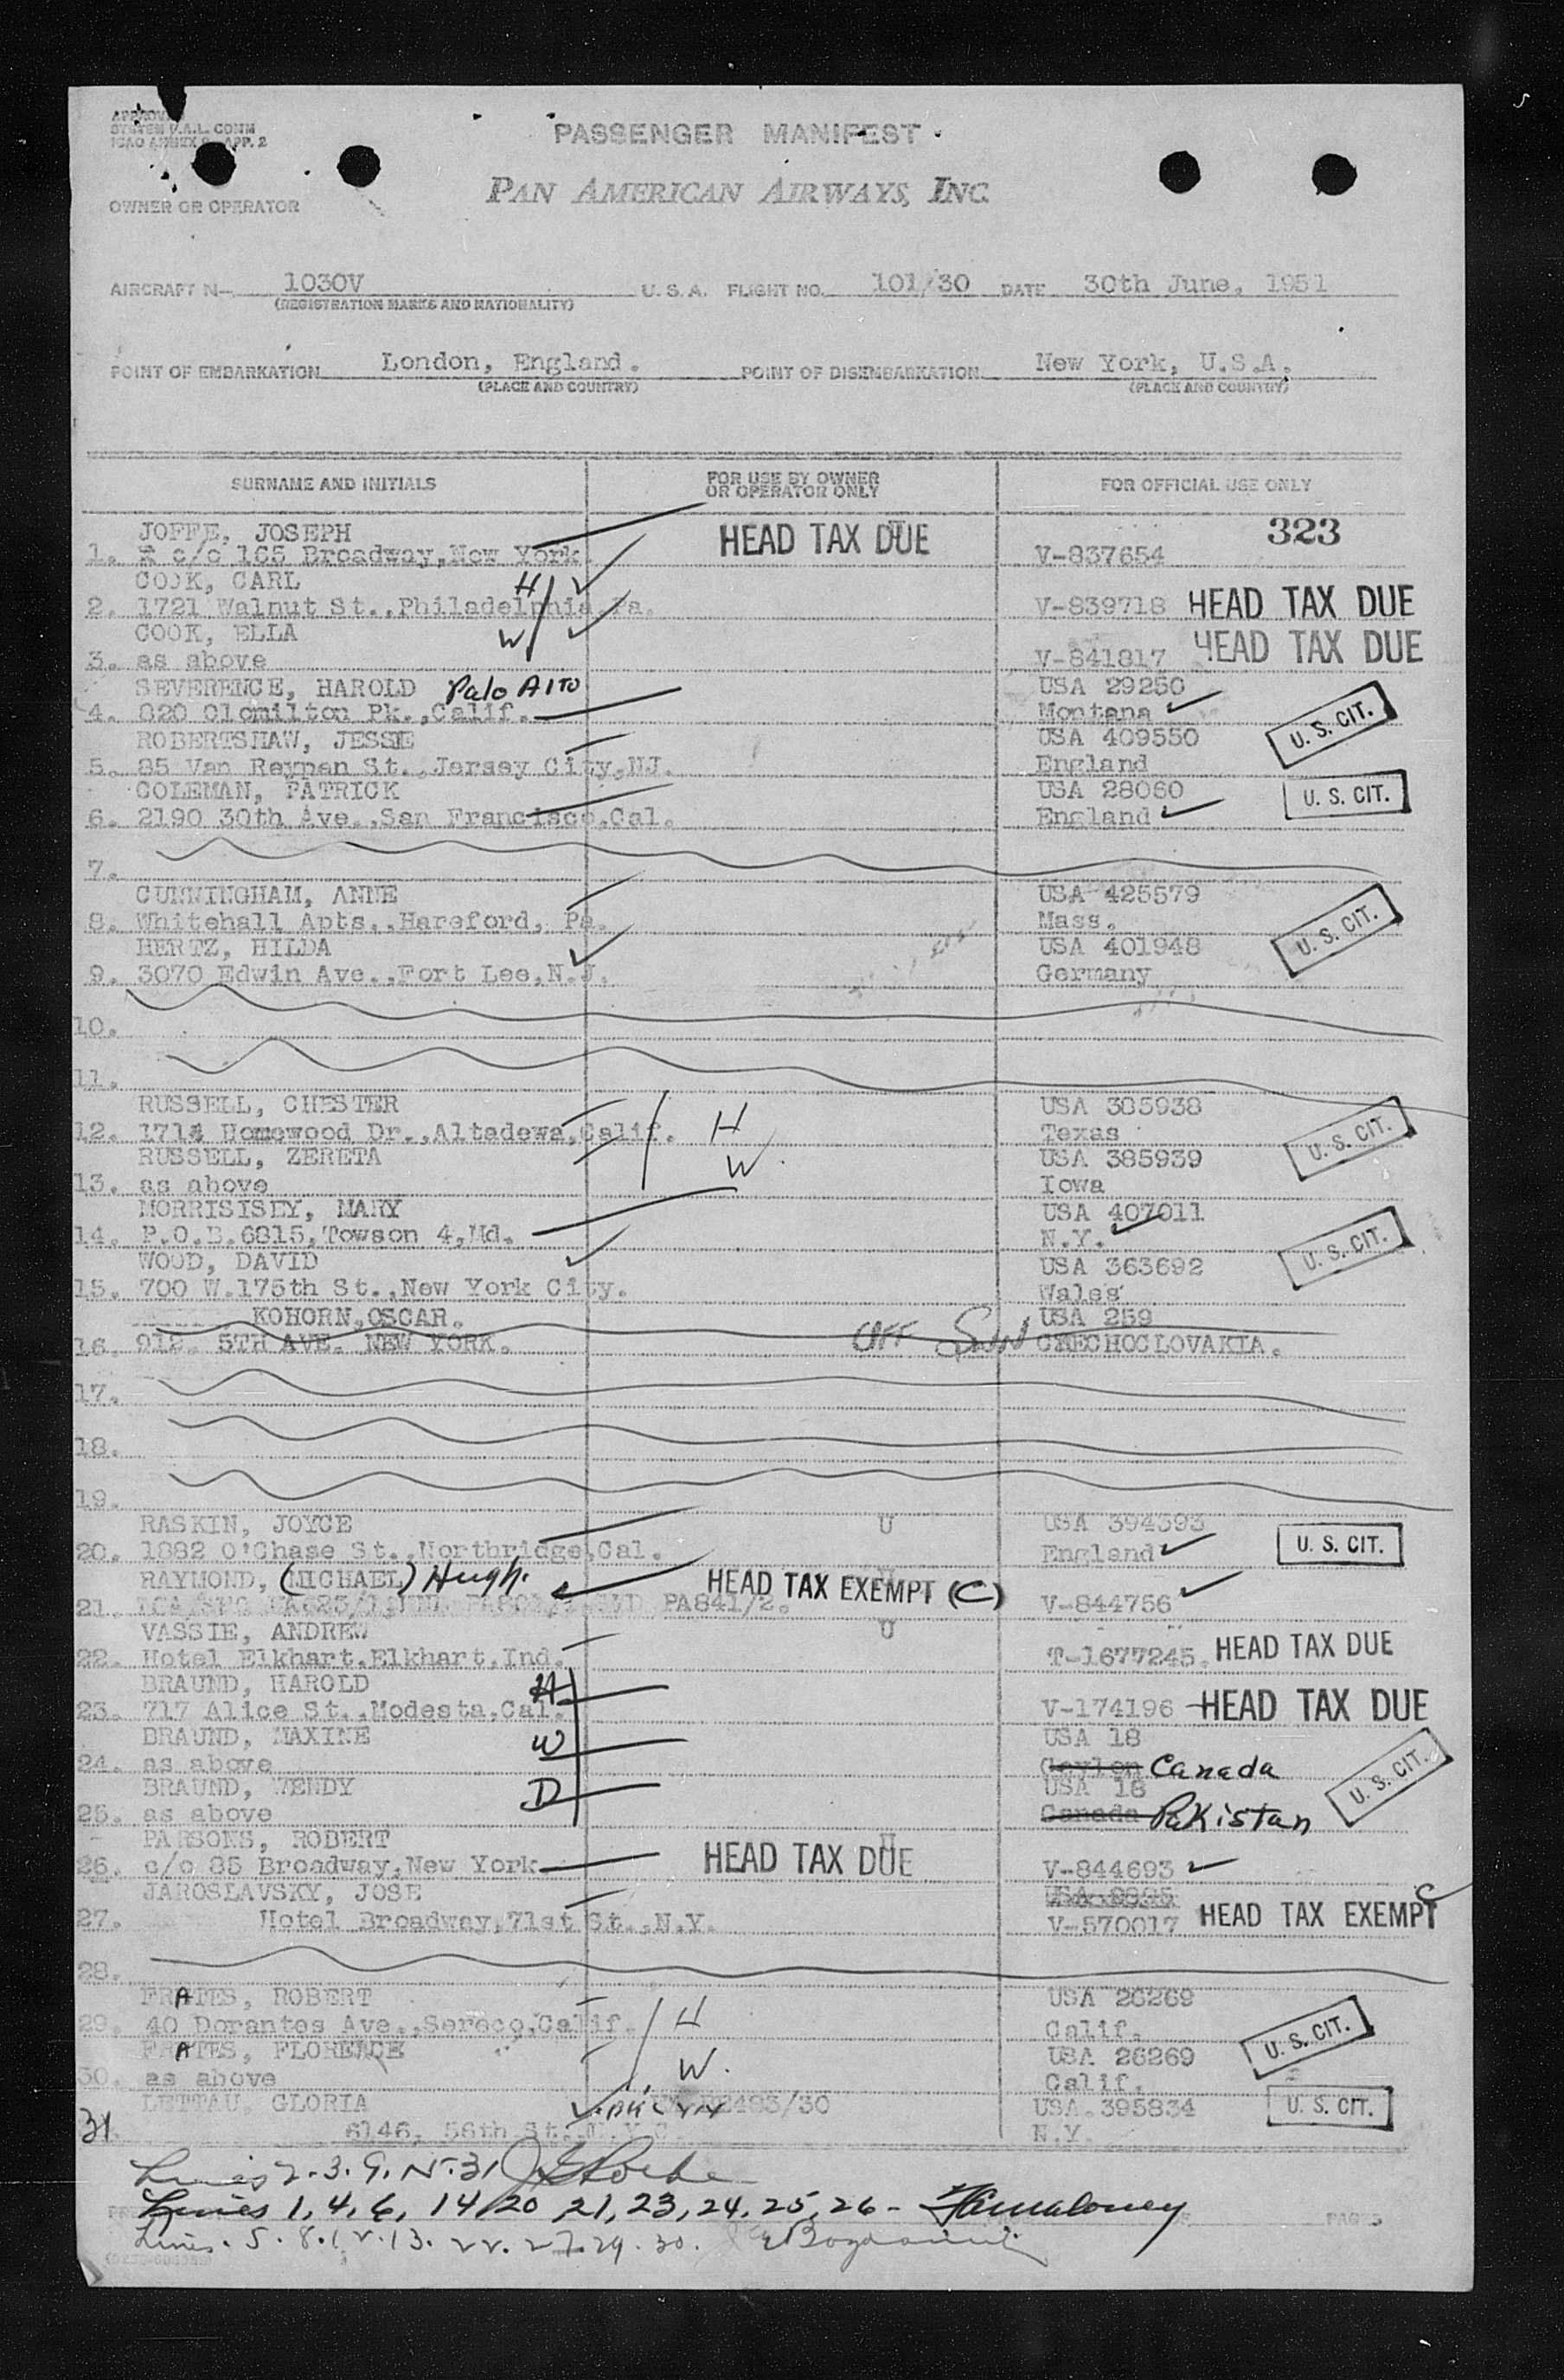 APPROVED
SYSTEM U.A.L. COMM
ICAO ANNEX 9 APP. 2
PASSENGER MANIFEST
PAN AMERICAN AIRWAYS, INC.
OWNER OR OPERATOR
AIRCRAFT N— 1030V U. S. A. FLIGHT NO. 101/30 DATE 30th June, 1951
(REGISTRATION MARKS AND NATIONALITY)
POINT OF EMBARKATION London, England. POINT OF DISEMBARKATION New York, U.S.A.
(PLACE AND COUNTRY) (PLACE AND COUNTRY)
SURNAME AND INITIALS FOR USE BY OWNER OR OPERATOR ONLY FOR OFFICIAL USE ONLY
JOFFE, JOSEPH HEAD TAX DUE U 323
1. c/o 165 Broadway, New York V-837654
COOK, CARL H
2. 1721 Walnut St., Philadelphia Pa. V-839718 HEAD TAX DUE
COOK, ELLA W
3. as above V-841817 HEAD TAX DUE
SEVERENCE, HAROLD Palo Alto USA 29250
4. 820 Clomilton Pk., Calif. Montana U. S. CIT.
ROBERTSHAW, JESSIE USA 409550
5. 85 Van Reypen St., Jersey City, NJ. England
COLEMAN, PATRICK USA 28060 U. S. CIT.
6. 2190 30th Ave., San Francisco, Cal. England
7.
CUNNINGHAM, ANNE USA 425579
8. Whitehall Apts., Hareford, Pa. Mass. U. S. CIT.
HERTZ, HILDA USA 401948
9. 3070 Edwin Ave., Fort Lee, N.J. Germany
10.
11.
RUSSELL, CHESTER USA 385938
12. 1714 Homewood Dr., Altadewa, Calif. H Texas U. S. CIT.
RUSSELL, ZERETA W. USA 385939
13. as above Iowa
MORRISISEY, MARY USA 407011
14. P.O.B. 6815, Towson 4, Md. N.Y. U. S. CIT.
WOOD, DAVID USA 363692
15. 700 W. 175th St., New York City. Wales
KOHORN, OSCAR. USA 259
16. 912. 5TH AVE. NEW YORK. OFF CZECHOCLOVAKIA.
17.
18.
19.
RASKIN, JOYCE U USA 394393
20. 1882 O'Chase St., Northbridge, Cal. England U. S. CIT.
RAYMOND, (MICHAEL) Hugh. HEAD TAX EXEMPT (C)
21. PA841/2. V-844756
VASSIE, ANDREW U
22. Hotel Elkhart, Elkhart, Ind. T-1677245. HEAD TAX DUE
BRAUND, HAROLD H
23. 717 Alice St., Modesta, Cal. V-174196 HEAD TAX DUE
BRAUND, MAXINE W USA 18
24. as above Ceylon Canada U. S. CIT.
BRAUND, WENDY D USA 18
25. as above Canada Pakistan
PARSONS, ROBERT HEAD TAX DUE U
26. c/o 85 Broadway, New York V-844693
JAROSLAVSKY, JOSE C
27. Hotel Broadway, 71st St., N.Y. V-570017 HEAD TAX EXEMPT
28.
FRATES, ROBERT USA 26269
29. 40 Dorantes Ave., Sereco, Calif. H Calif. U. S. CIT.
FRATES, FLORENCE USA 26269
30. as above W. Calif.
LETTAU, GLORIA D2493/30 USA. 395834 U. S. CIT.
31. 6146, 56th St. N.Y.C. N.Y.
Lines 2. 3. 9. 15. 31
Lines 1, 4, 6, 14, 20, 21, 23, 24, 25, 26 -
Lines. 5. 8. 12. 13. 22. 27. 29. 30.
PAGES